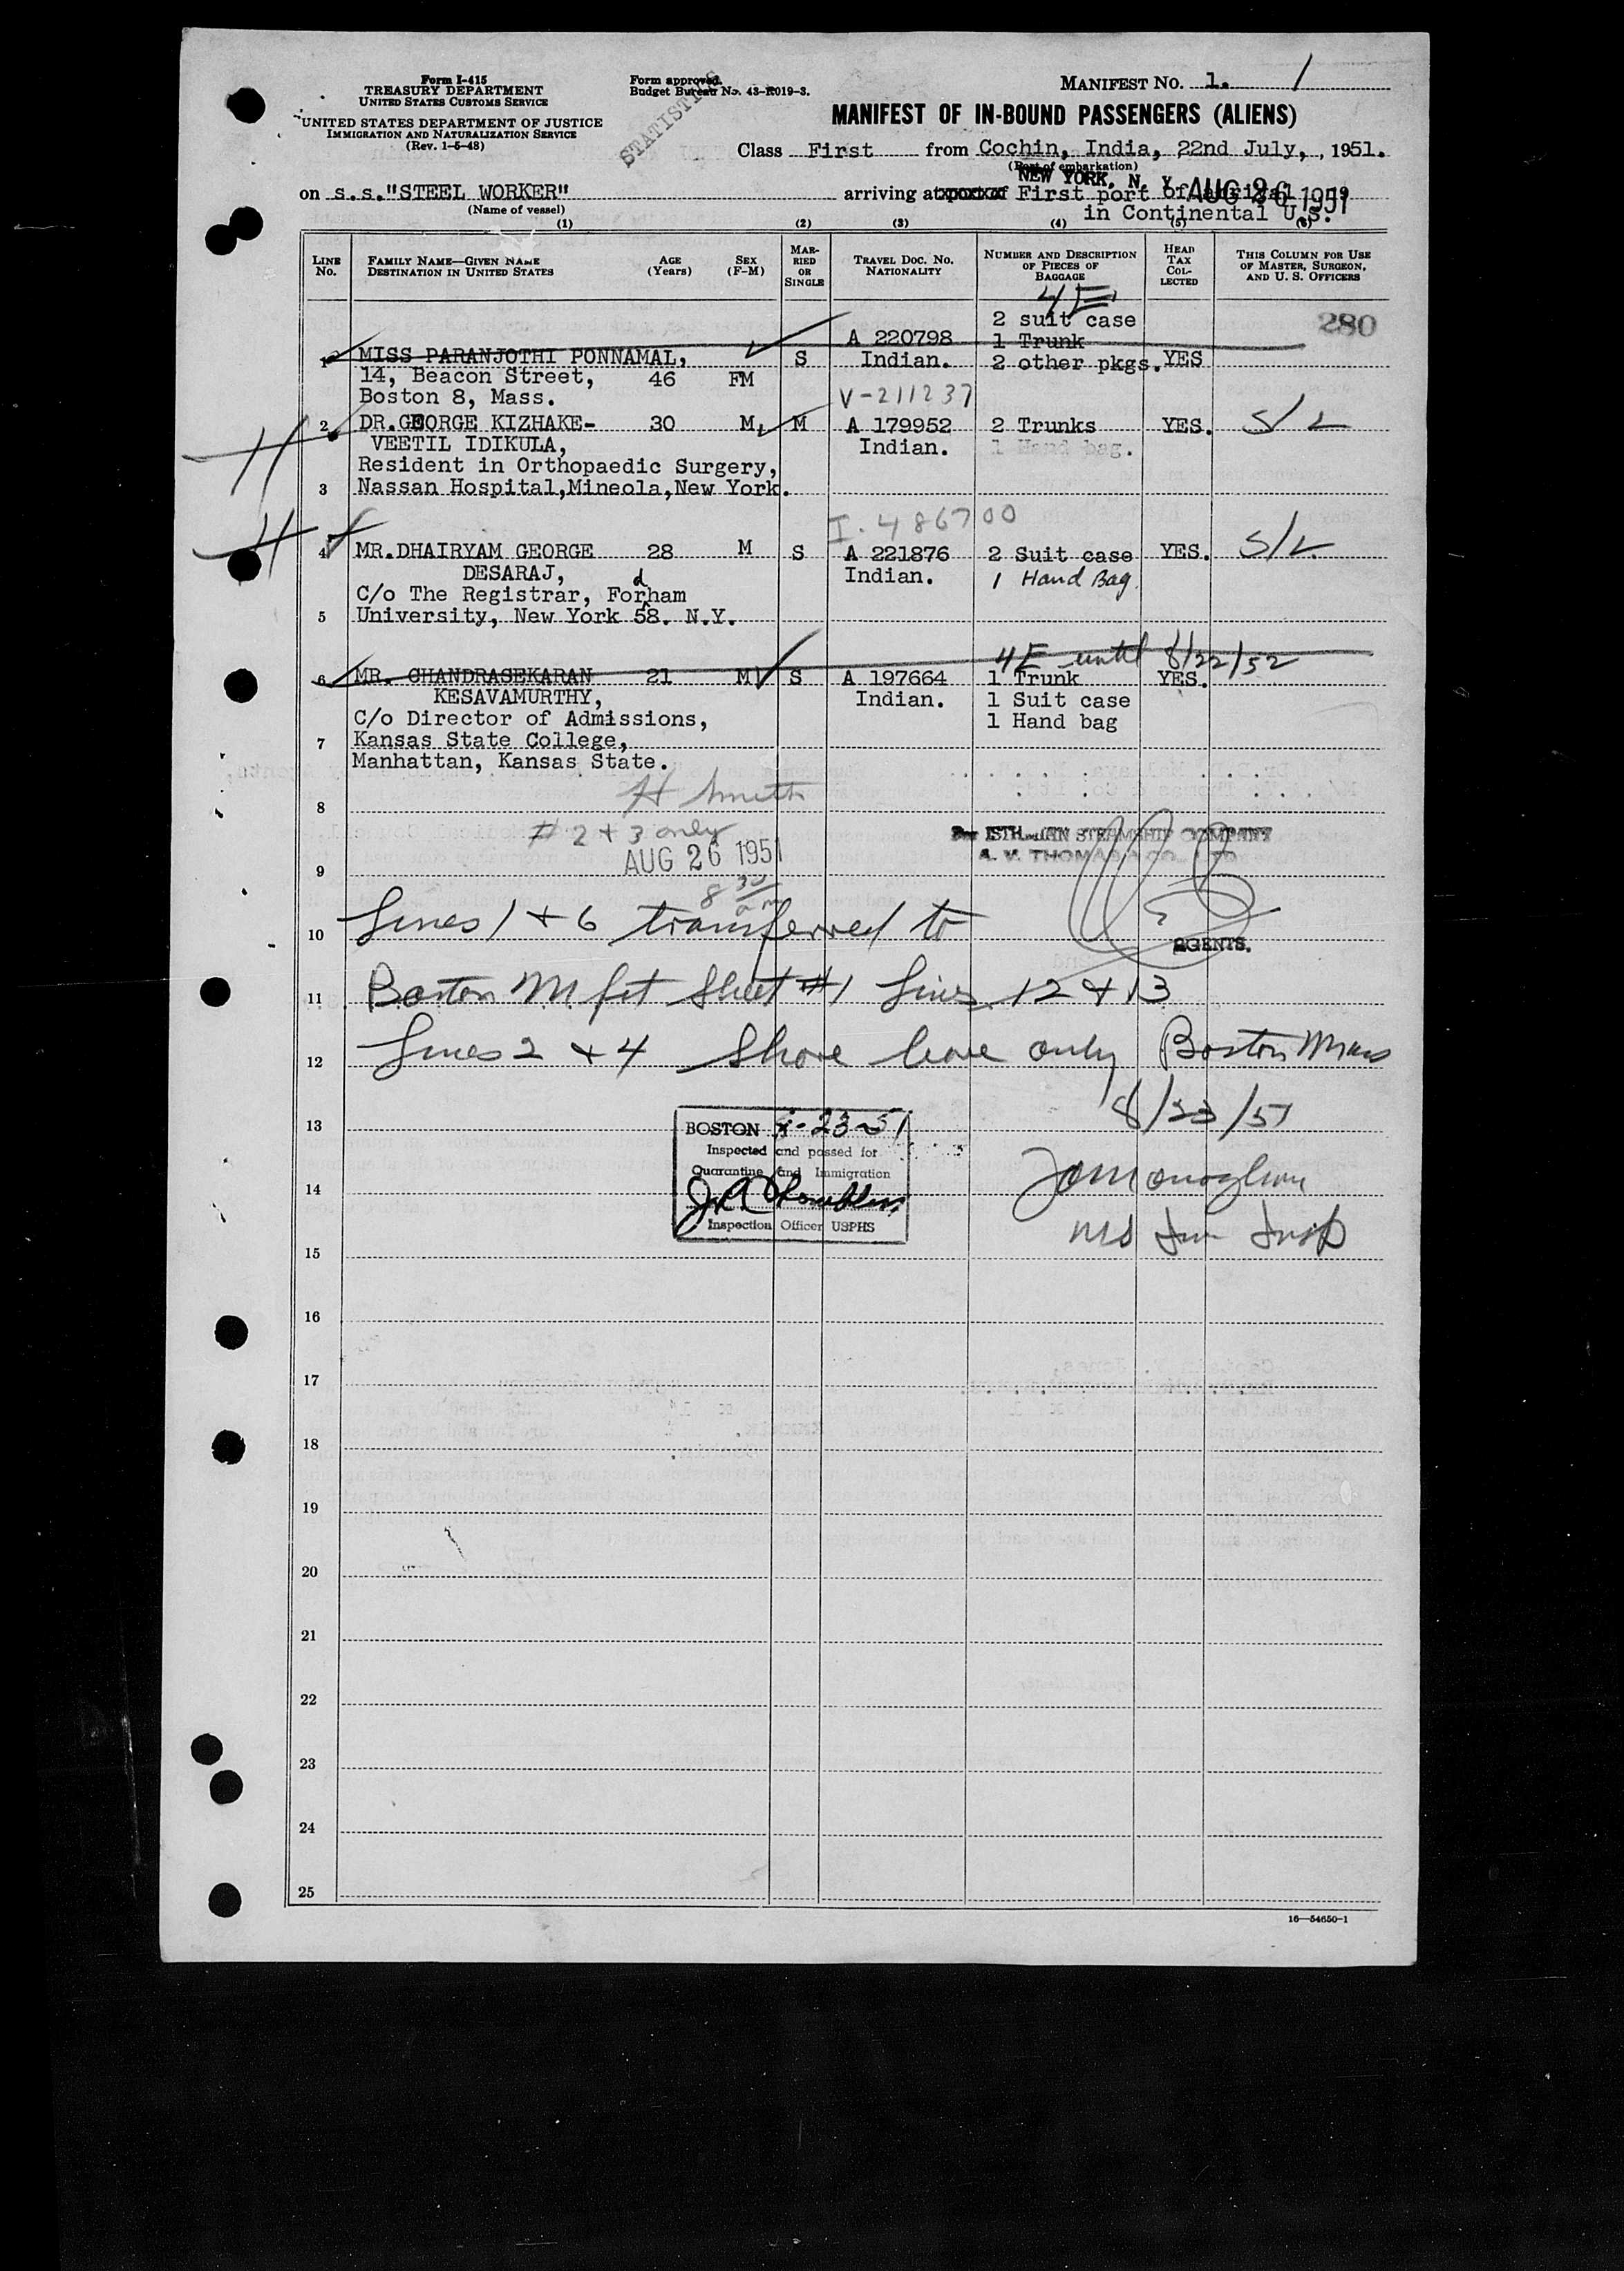 Form I-415
TREASURY DEPARTMENT
UNITED STATES CUSTOMS SERVICE
UNITED STATES DEPARTMENT OF JUSTICE
IMMIGRATION AND NATURALIZATION SERVICE
(Rev. 1-5-48)
Form approved.
Budget Bureau No. 43-R019-3.
STATISTICS
MANIFEST NO. 1. 1
MANIFEST OF IN-BOUND PASSENGERS (ALIENS)
Class First from Cochin, India, 22nd July, , 1951.
(Port of embarkation)
NEW YORK, N. Y. AUG 26 1951
on s.s."STEEL WORKER" arriving at First port of arrival
(Name of vessel) in Continental U.S.
(1) (2) (3) (4) (5) (6)
LINE No. FAMILY NAME—GIVEN NAME DESTINATION IN UNITED STATES AGE (Years) SEX (F-M) MARRIED OR SINGLE TRAVEL DOC. NO. NATIONALITY NUMBER AND DESCRIPTION OF PIECES OF BAGGAGE HEAD TAX COLLECTED THIS COLUMN FOR USE OF MASTER, SURGEON, AND U. S. OFFICERS
4E
2 suit case 280
A 220798 1 Trunk
1 MISS PARANJOTHI PONNAMAL, S Indian. 2 other pkgs. YES
14, Beacon Street, 46 FM
Boston 8, Mass. V-211237
2 DR.GEORGE KIZHAKE- 30 M, M A 179952 2 Trunks YES. S/L
VEETIL IDIKULA, Indian. 1 Hand bag.
Resident in Orthopaedic Surgery,
3 Nassan Hospital,Mineola,New York.
I. 486700
4 MR.DHAIRYAM GEORGE 28 M S A 221876 2 Suit case YES. S/L
DESARAJ, Indian. 1 Hand Bag.
d
C/o The Registrar, Forham
5 University, New York 58. N.Y.
4E until 8/22/52
6 MR. CHANDRASEKARAN 21 M S A 197664 1 Trunk YES.
KESAVAMURTHY, Indian. 1 Suit case
C/o Director of Admissions, 1 Hand bag
7 Kansas State College,
Manhattan, Kansas State.
H Smith
8
# 2 + 3 only
Per ISTHMIAN STEAMSHIP COMPANY
AUG 26 1951
A. V. THOMAS & CO., LTD
9
8 30 am
10 Lines 1 + 6 transferred to
AGENTS.
11 Boston Mfst Sheet #1 Lines 12 + 13
12 Lines 2 + 4 Shore leave only Boston Mass
8/23/51
13 BOSTON 8-23-51
Inspected and passed for
Quarantine and Immigration
14
Inspection Officer USPHS
15
16
17
18
19
20
21
22
23
24
25
16—54650-1